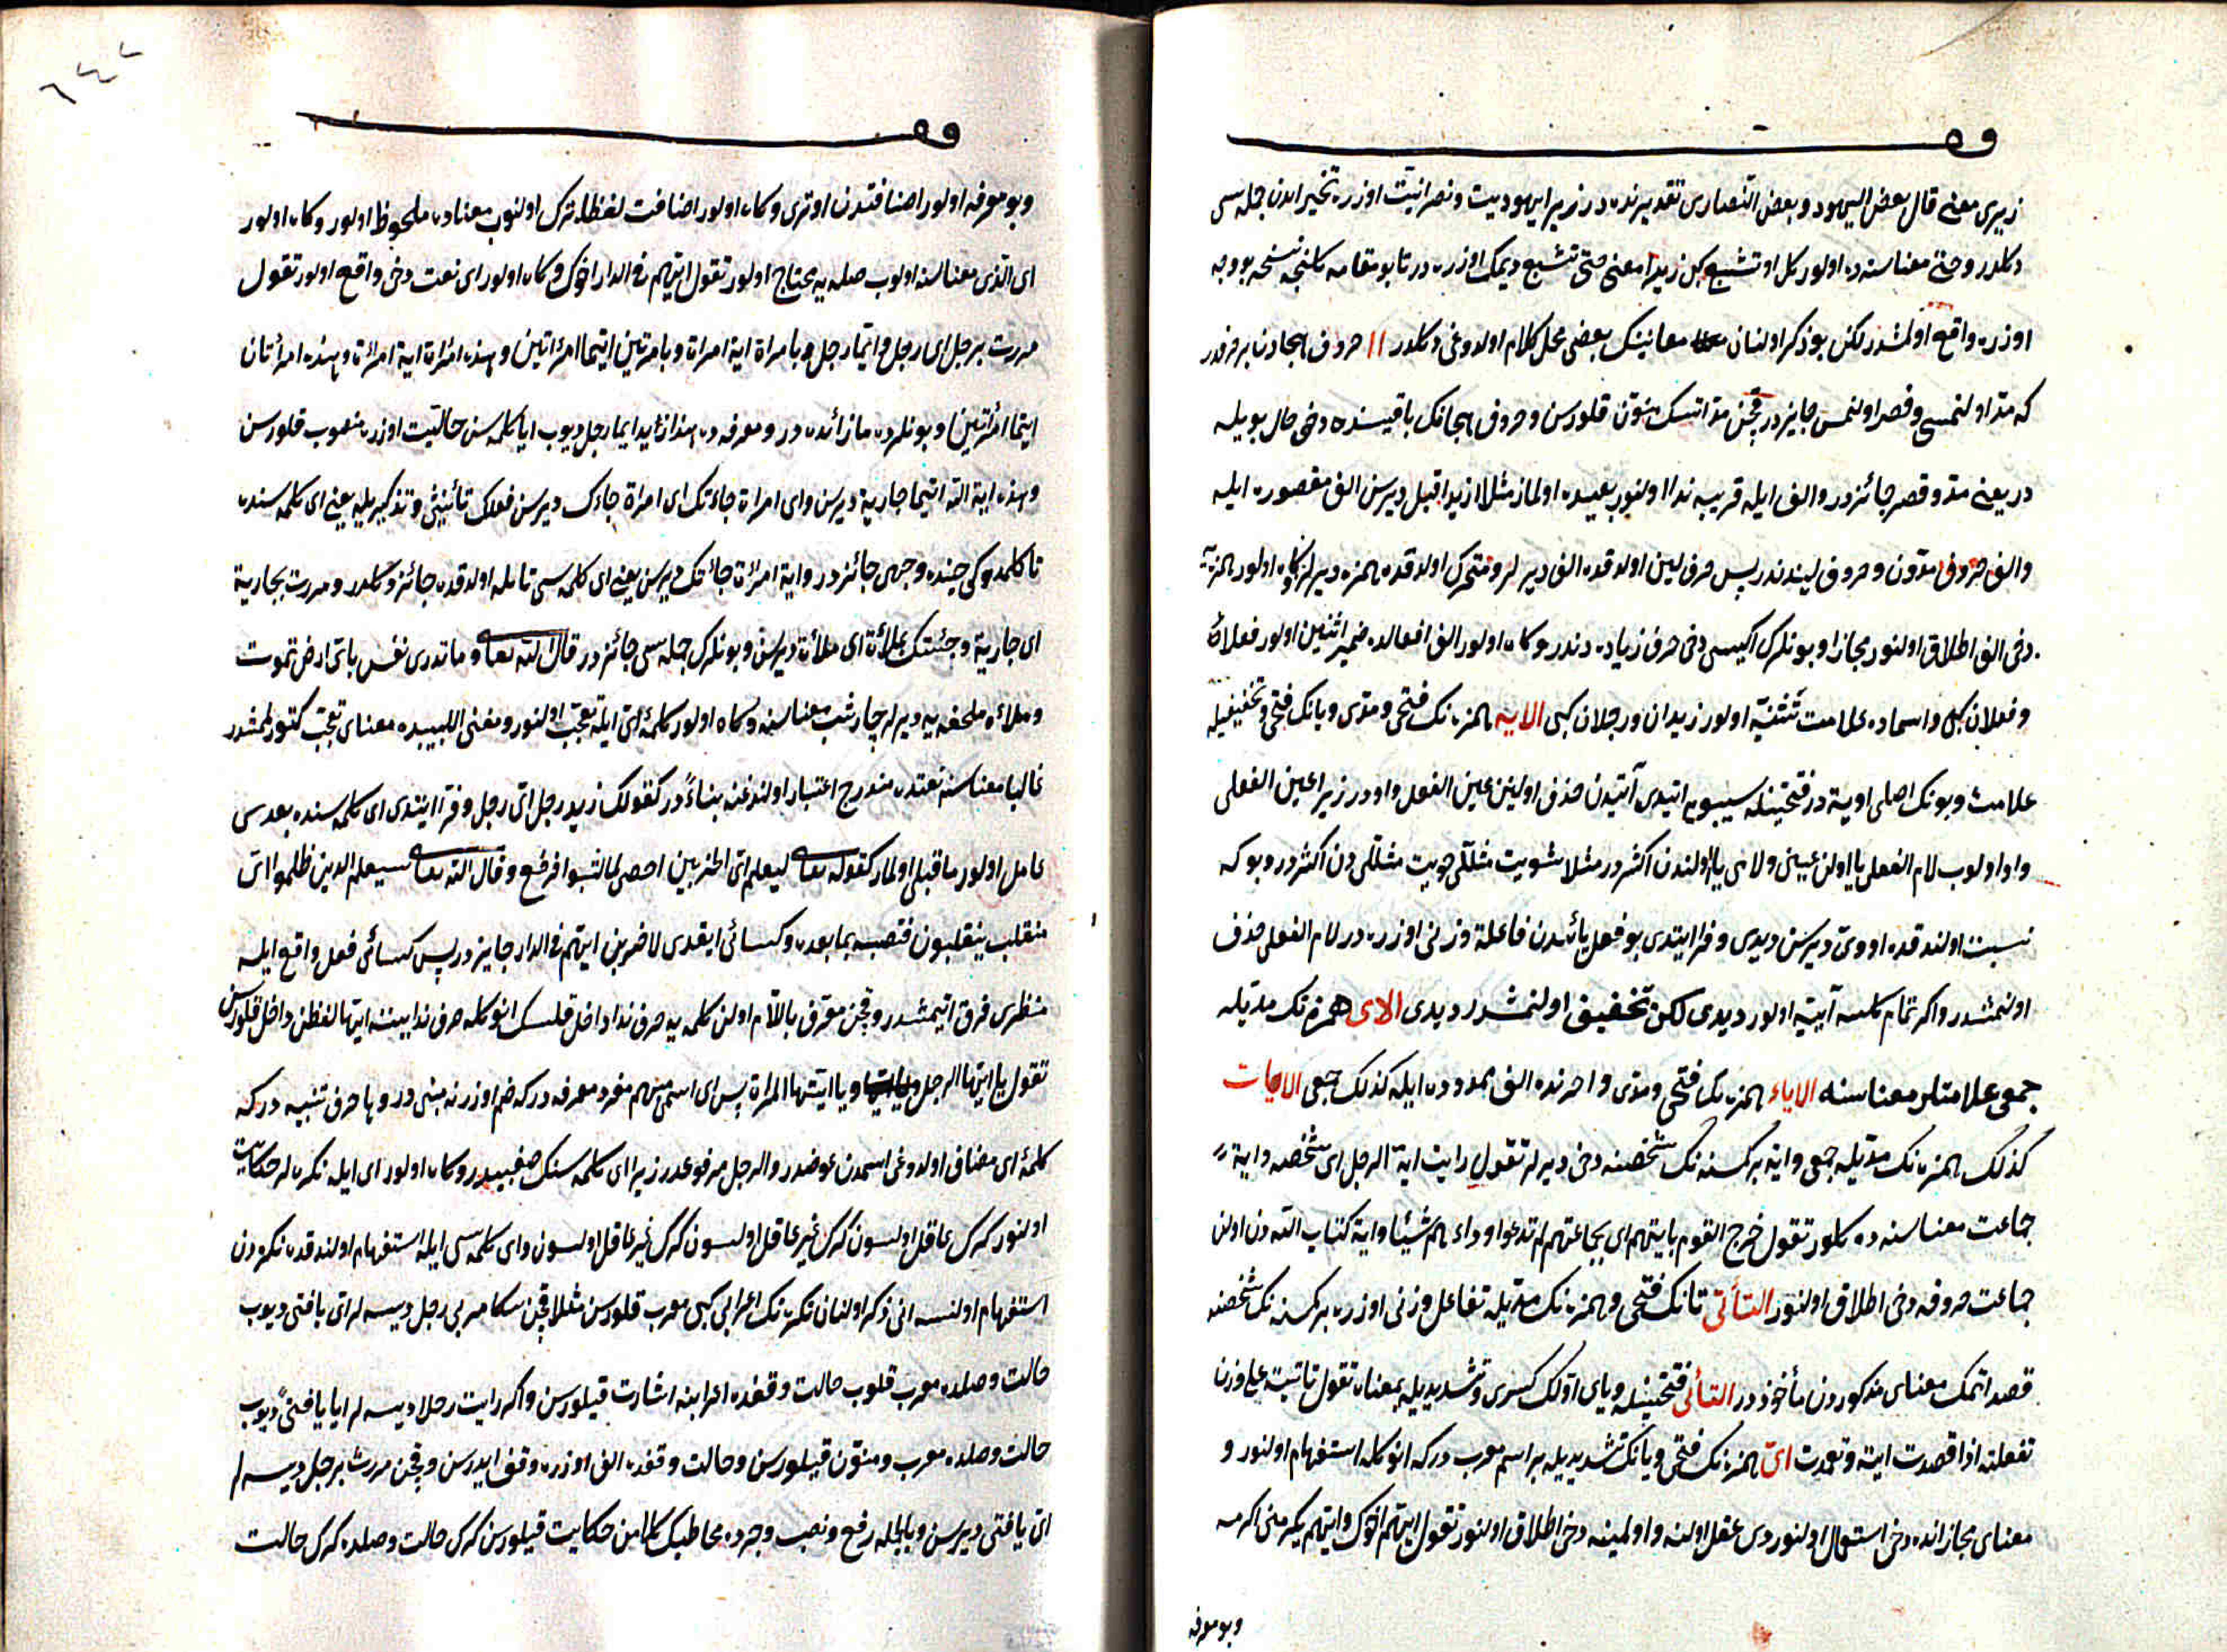 زیری معنی قال بعض الیهود و بعض النصاری تقدیرنده در زیرا یهودیت و نصرانیت اوزره تخییر ایدن جمله سی
دکلدر و حتی معناسنده اولور کل او تشبع کبی زیرا معنی حتی تشبع دیمک اوزره در تا بو مقامه کلنجه نسخه بو وجه
اوزره واقع اولمشدر لکن بو ذکر اولنان معانینک بعضی محل کلام اولدوغی دکلدر ١١ حروف هجادن بر حرفدر
که مد اولنمسی و قصر اولنمسی جایزدر قچن مد اتسک منون قلورسن و حروف هجانک باقیسنده دخی حال بویله
در یعنی مد و قصر جائزدر و الف ایله قریبه ندا اولنور بعیده اولماز مثلا ازید اقبل دیرسن الف مقصوره ایله
و الف حروف مدون و حروف لیندندر پس حرف لین اولدقده الف دیرلر و متحرک اولدقده همزه دیرلر و کاه اولور همزیه
دخی الف اطلاق اولنور مجازا و بونلرک ایکیسی دخی حرف زیاده دندر و کاه اولور الف افعالده ضمیر اثنین اولور فعلا
و فعلان کبی و اسماده علامت تثنیه اولور زیدان و رجلان کبی الایه همزه نک فتحی و مدی و یانک فتحی و تخفیفیله
علامت و بونک اصلی اویة در فتحتینله سیبویه ایتدی آیتدن حذف اولینن عین الفعل واودر زیرا عین الفعلی
واو اولوب لام الفعلی یا اولن عینی و لامی یا اولندن اکثردر مثلا شویت مثللی حییت مثللی دن اکثردر و بو که
نسبت اولندقده اووی دیرسن دیدی و فرا ایتدی بو فعل یائیدن فاعلة وزنی اوزره در لام الفعلی حذف
اولنمشدر و اکر تمام کلسه آییه اولور دیدی لکن تخفیف اولنمشدر دیدی الای همزه نک مدیله
جمعی علامتلر معناسنه الایاء همزه نک فتحی و مدی و اخرنده الف ممدوده ایله کذلک جمعی الایات
کذلک همزه نک مدیله جمعی و ایة بر کسنه نک شخصنه دخی دیرلر تقول رایت ایة الرجل ای شخصه و ایة
جماعت معناسنه ده کلور تقول خرج القوم بایتهم ای بجماعتهم لم تدعوا وراءهم شیئا و ایة کتاب الله دن اولن
جماعت حروفه دخی اطلاق اولنور التأتی تانک فتحی و همزه نک مدیله تفاعل وزنی اوزره بر کسنه نک شخصنه
قصد اتمک معنای مذکوردن مأخوذدر التأیی فتحتینله و یای اولک کسری و تشدیدیله بمعناه تقول تاییته علی وزن
تفعلته اذا قصدت ایته و تعمدت ای همزه نک فتحی و یانک تشدیدیله بر اسم معرب در که انوکله استفهام اولنور و
معنای مجازاتده دخی استعمال اولنور ذی عقل اولنه و اولمینه دخی اطلاق اولنور تقول ایهم اخوک و ایهم یکرمنی اکرمه
و بو معرفه
و بو معرفه اولور اضافتدن اوتری و کاه اولور اضافت لفظا ترک اولنوب معناده ملحوظ اولور و کاه اولور
ای الذی معناسنه اولوب صله یه محتاج اولور تقول ایهم فی الدار اخوک و کاه اولور ای نعت دخی واقع اولور تقول
مررت برجل ای رجل و ایما رجل و بامراة ایة امراة و بامرتین ایتما امرئتین و هذه امراة ایة امرئة و هذه امرأتان
ایتما امرئتین و بونلرده ما زائده در و معرفه ده هذا زید ایما رجل دیوب ایا کلمه سن حالیت اوزره منصوب قلورسن
و هذه ایة الله ایتما جاریة دیرسن و ای امراة جاءتک ای امراة جاءک دیرسن فعلک تأنیثی و تذکیریله یعنی ای کلمه سنده
تا کلمدوکی حینده وجهی جائزدر و ایة امرئة جاءتک دیرسن یعنی ای کلمه سی تا ایله اولدقده جائز دکلدر و مررت بجاریة
ای جاریة و جئتک بملأة ای ملأة دیرسن و بونلرک جمله سی جائزدر قال الله تعالی و ما تدری نفس بای ارض تموت
و ملأه ملحفه یه دیرلر چارشب معناسنه و کاه اولور کلمه ای ایله تعجب اولنور و مغنی اللبیبده معنای تعجب کتورلمشدر
غالبا معناسنه نعتده مندرج اعتبار اولندغنه بناءً در کقولک زید رجل ای رجل و فرا ایتدی ای کلمه سنده بعدسی
عامل اولور ماقبلی اولماز کقوله تعالی لیعلم ای الحزبین احصی لما لبثوا فرفع و قال الله تعالی سیعلم الذین ظلموا ای
منقلب ینقلبون فنصبه بما بعده و کسائی ایتدی لاضربن ایهم فی الدار جایزدر پس کسائی فعل واقع ایله
منتظری فرق اتیمشدر و قچن معرف باللام اولن کلمه یه حرف ندا داخل قلسک انوکله حرف ندا بیننه ایها لفظن داخل قلورسن
تقول یا ایها الرجل و یا ایتها المراة پس ای اسم مبهم مفرد معرفه در که ضم اوزرنه مبنی در و ها حرف تنبیه در که
کلمه ای مضاف اولدوغی اسمدن عوضدر و الرجل مرفوعدر زیرا ای کلمه سنک صفتیدر و کاه اولور ای ایله نکره لر حکایت
اولنور کرک عاقل اولسون کرک غیر عاقل اولسون و ای کلمه سی ایله استفهام اولندقده نکره دن
استفهام اولنسه انی ذکر اولنان نکره نک اعرابی کبی معرب قلورسن مثلا قچن سکا مر بی رجل دیسه لر ای یا فتی دیوب
حالت وصلده معرب قلوب حالت وقفده اعرابنه اشارت قیلورسن و اکر رایت رجلا دیسه لر ایا یا فتی دیوب
حالت وصلده معرب و منون قیلورسن و حالت وقفده الف اوزره وقف ایدرسن و قچن مررت برجل دیسه لر
ای یا فتی دیرسن و بالجمله رفع و نصب و جرده مخاطبک کلامن حکایت قیلورسن کرک حالت وصلده کرک حالت